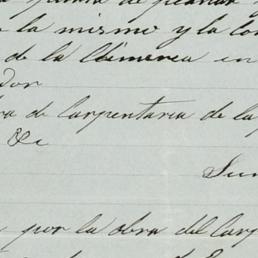 la mismo y la Co
de la Chimenea en
dor
ra de Carpenteria de la
&c
Sum
por la obra del Carp